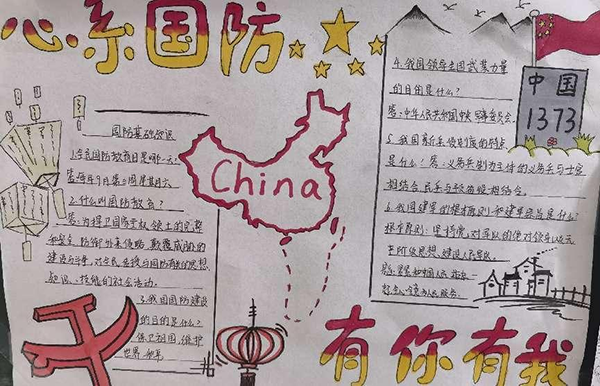 心系国防
国防基础知识
1.全民国防教育日是哪一天?
答:每年9月第三个星期六
2.什么叫国防教育?
答:为捍卫国家主权、领土的完整
和安全,防御外来侵略、颠覆威胁的
建设与斗争,对全民
思想
知识、技能的社会活动。
3.我国国防建设
的目的是什么?
保卫祖国,维护
世界和平
China
4.我国领导全国武装力量
的目的是什么?
答:中华人民共和国中央军事委员会
5.我国
的特点
是什么?答:义务兵制为主体的义务兵与士官
相结合、民兵与预备役相结合。
6.我国建军的根本原则和建军宗旨是什么?
根本原则:坚持党对军队的绝对领导
中国
1373
有你有我